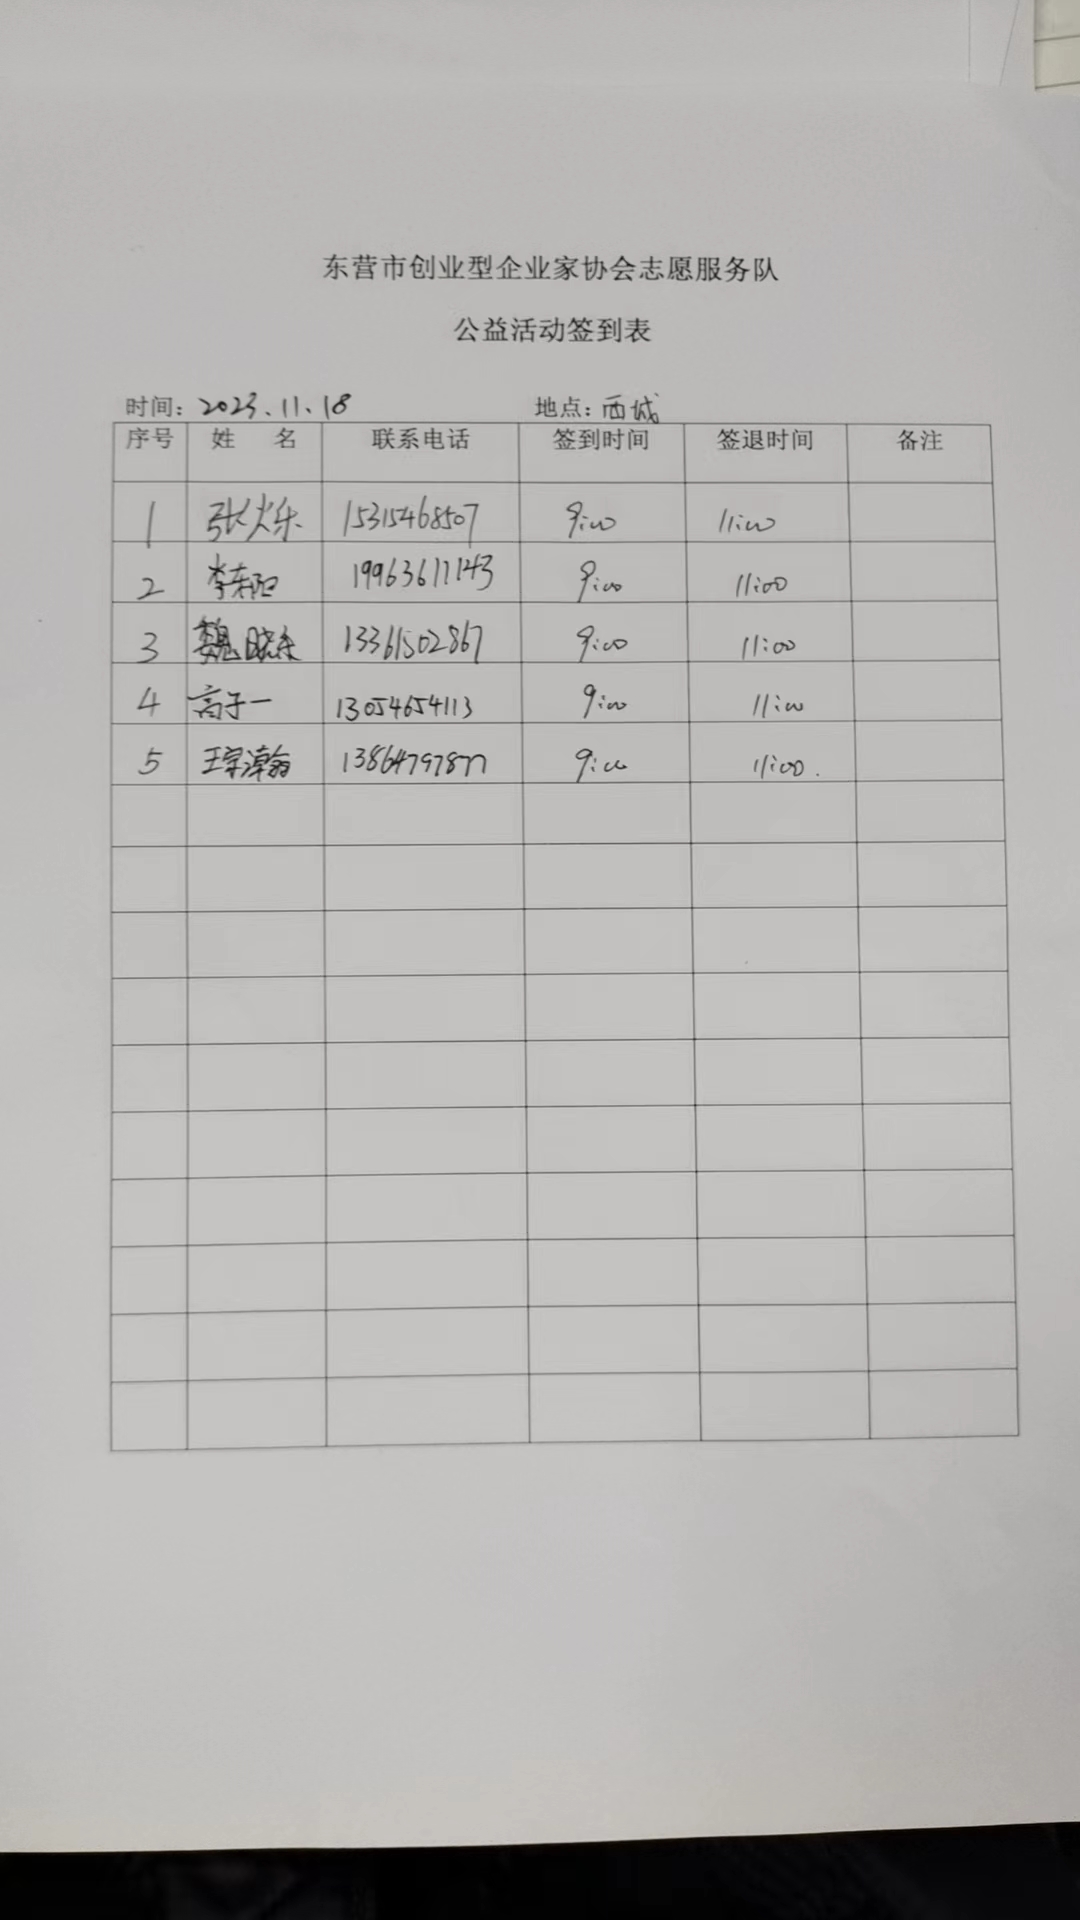 东营市创业型企业家协会志愿服务队
公益活动签到表
时间: 2023.11.18 地点: 西城
序号 姓 名 联系电话 签到时间 签退时间 备注
1 张火乐 15315468507 9:00 11:00
2 李东阳 19963611143 9:00 11:00
3 魏晓东 13361502867 9:00 11:00
4 高子一 13054654113 9:00 11:00
5 王宗瀚 13864797877 9:00 11:00.